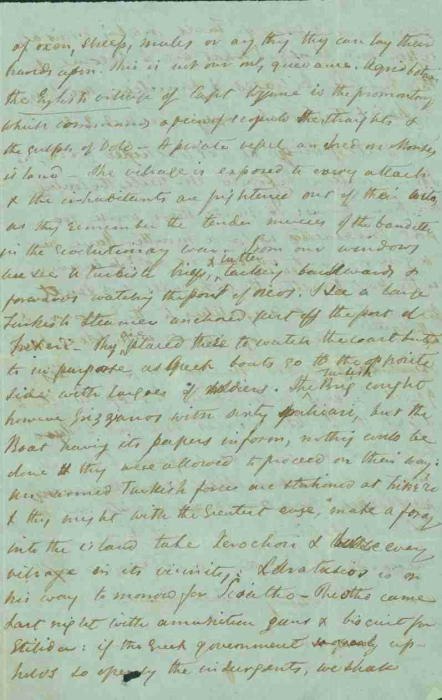 of oxen, sheep, mules or any thing they can lay their
hands upon. This is not our only grievance. A
the English village of Capt is the promontory
which commands a of the straights &
the gulph of Volo – A private vessel anchored on
island – The village is exposed to every attack
& the inhabitants are frightened out of their
as they remember the tender mercies of the banditti
in the revolutionary war – from our windows
we see a Turkish brig & cutter, tacking backwards &
forwards watching the port of . I see a large
Turkish Steamer anchored just off the port of
– they placed these to watch the coast but
to no purpose, as Greek boats go to the opposite
side with cargoes of soldiers. The Turkish brig caught
however Grizzanos with sixty , but the
Boat having its papers in form, nothing could be
done & they were allowed to proceed on their way:
armed Turkish forces are stationed at
& they might with the greatest ease, make a foray
into the island take Xerochori & every
village in its vicinity; is on
his way to morrow for Sciatho – came
last night with ammunition guns & biscuit for
: if the Greek government up-
holds so openly the insurgents, we shall